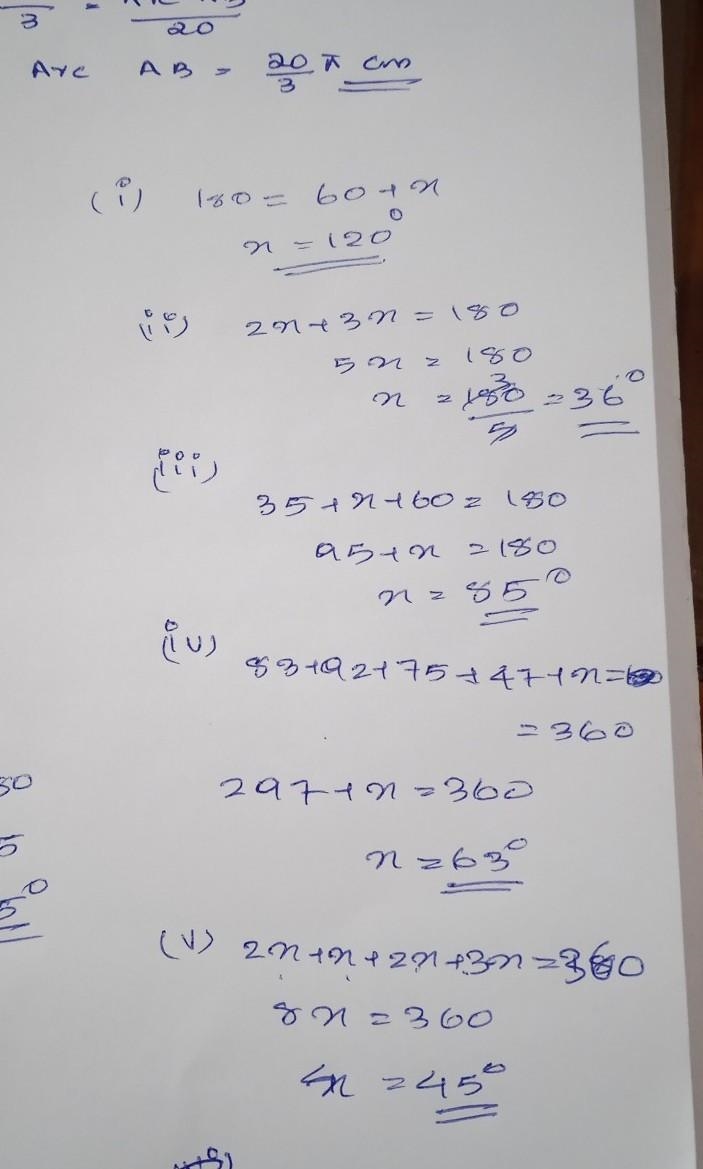 3 = 20
Arc AB = 20/3 π cm
(i) 180 = 60 + x
x = 120°
(ii) 2x + 3x = 180
5x = 180
x = 180/5 = 36°
(iii)
35 + x + 60 = 180
95 + x = 180
x = 85°
(iv)
83 + 92 + 75 + 47 + x =
= 360
30
297 + x = 360
5
x = 63°
5°
(v) 2x + x + 2x + 3x = 360
8x = 360
x = 45°